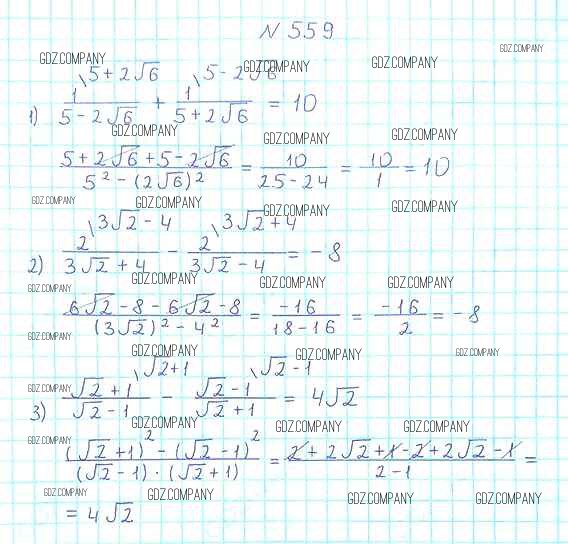 N 559
GDZ.COMPANY GDZ.COMPANY GDZ.COMPANY GDZ.COMPANY
1) 1\5+2√6 / 5-2√6 + 1\5-2√6 / 5+2√6 = 10
GDZ.COMPANY GDZ.COMPANY GDZ.COMPANY
5+2√6+5-2√6 / 5²-(2√6)² = 10 / 25-24 = 10 / 1 = 10
GDZ.COMPANY GDZ.COMPANY GDZ.COMPANY GDZ.COMPANY
2) 2\3√2-4 / 3√2+4 - 2\3√2+4 / 3√2-4 = -8
GDZ.COMPANY GDZ.COMPANY GDZ.COMPANY GDZ.COMPANY
6√2-8-6√2-8 / (3√2)²-4² = -16 / 18-16 = -16 / 2 = -8
GDZ.COMPANY GDZ.COMPANY GDZ.COMPANY GDZ.COMPANY
3) √2+1\√2+1 / √2-1 - √2-1\√2-1 / √2+1 = 4√2
GDZ.COMPANY GDZ.COMPANY
GDZ.COMPANY GDZ.COMPANY GDZ.COMPANY
(√2+1)²-(√2-1)² / (√2-1)·(√2+1) = 2+2√2+1-2+2√2-1 / 2-1 =
GDZ.COMPANY GDZ.COMPANY GDZ.COMPANY GDZ.COMPANY
= 4√2